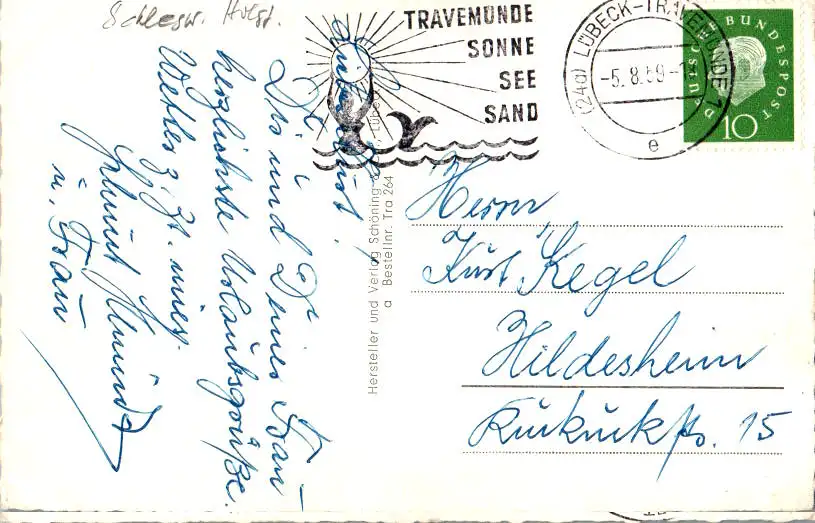 Schlesw. Holst.
TRAVEMÜNDE
SONNE
SEE
SAND
(24a) LÜBECK-TRAVEMÜNDE 1
-5.8.59-
e
DEUTSCHE BUNDESPOST
10
Lieber Kurt!
Dir und Deiner Frau
herzlichste Urlaubsgrüße.
Wetter z. Zt. mies.
Helmut
u. Frau
Hersteller und Verlag Schöning &
Bestellnr. Tra 264
Herrn
Kurt Kegel
Hildesheim
Kuckuckstr. 15